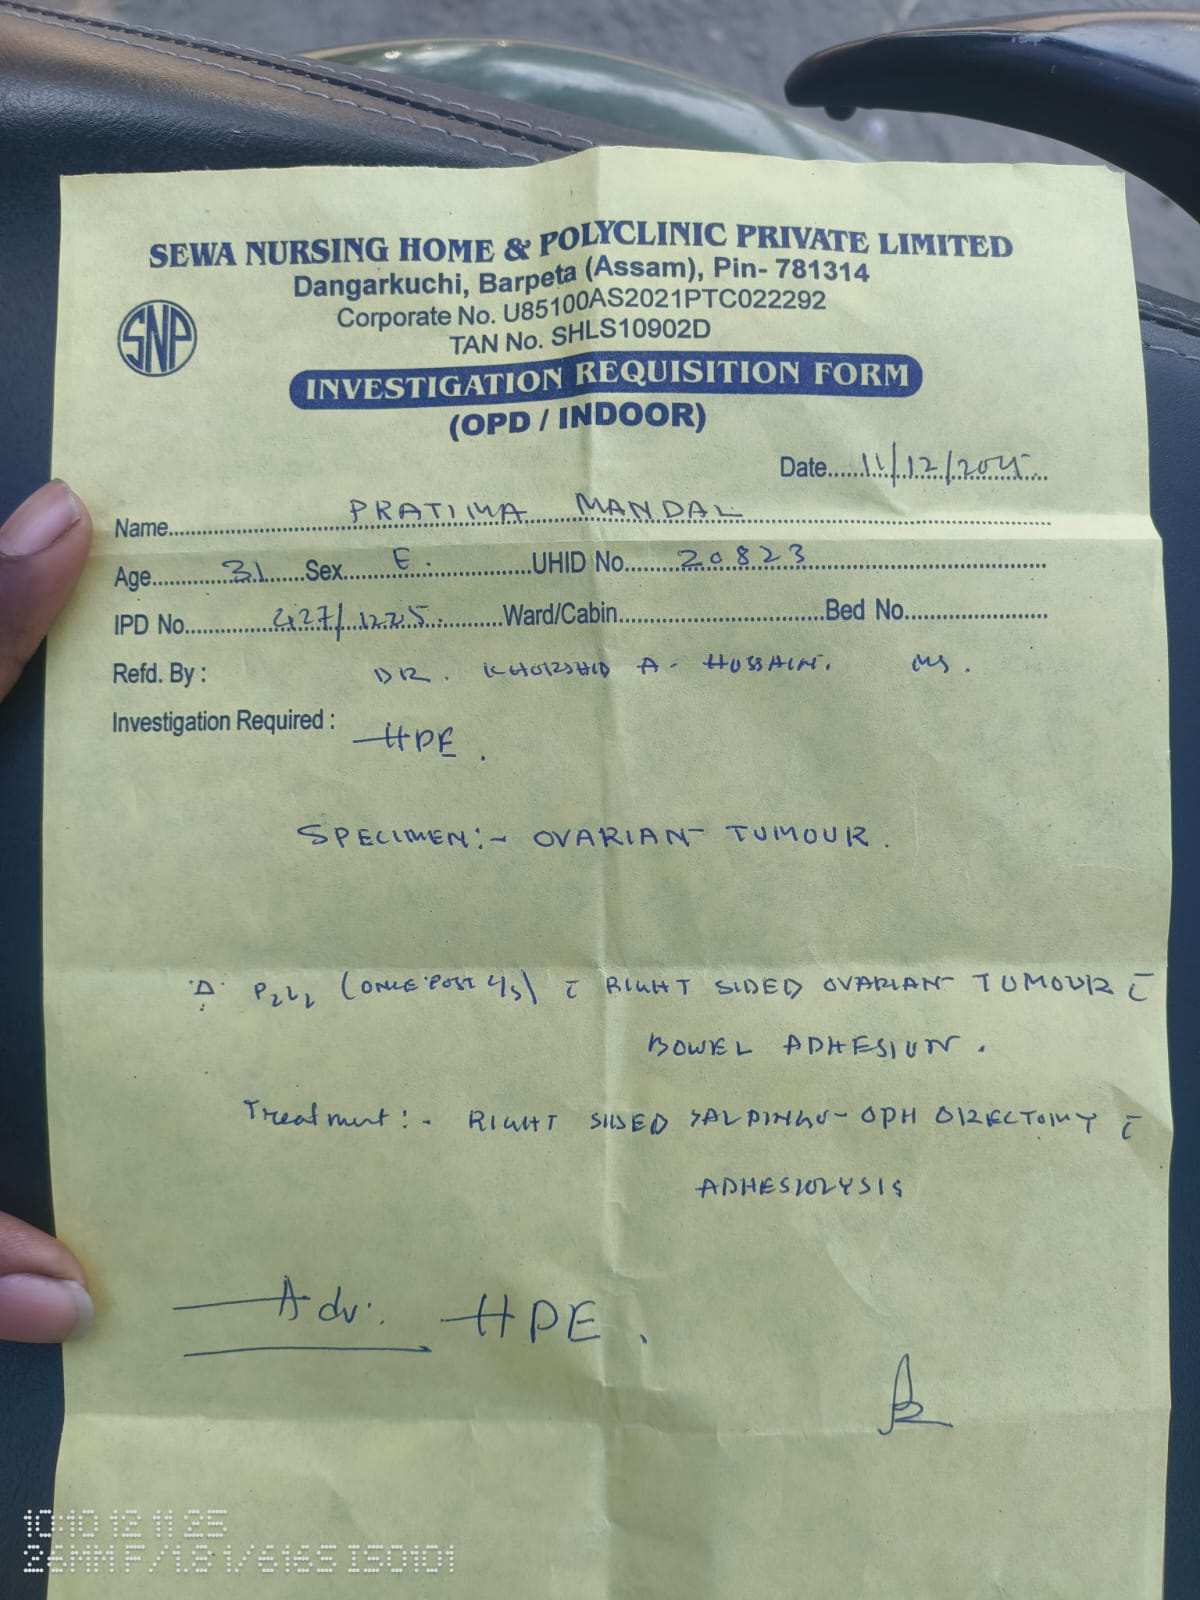 SEWA NURSING HOME & POLYCLINIC PRIVATE LIMITED
Dangarkuchi, Barpeta (Assam), Pin- 781314
Corporate No. U85100AS2021PTC022292
TAN No. SHLS10902D
SNP
INVESTIGATION REQUISITION FORM
(OPD / INDOOR)
Date......11/12/2025...
Name..........PRATIMA MANDAL..........
Age........31......Sex........F.........UHID No.......20823..........
IPD No..........427/1225..........Ward/Cabin..........Bed No..........
Refd. By : DR. KHORSHID A. HUSSAIN. MS.
Investigation Required :
HPE.
SPECIMEN:- OVARIAN TUMOUR.
Δ P2L2 (ONCE POST C/S) c̄ RIGHT SIDED OVARIAN TUMOUR c̄
BOWEL ADHESION.
Treatment:- RIGHT SIDED SALPINGO-OPHORECTOMY c̄
ADHESIOLYSIS
Adv: HPE.
10:10 12 11 25
26MM F/1.8 1/616S ISO101